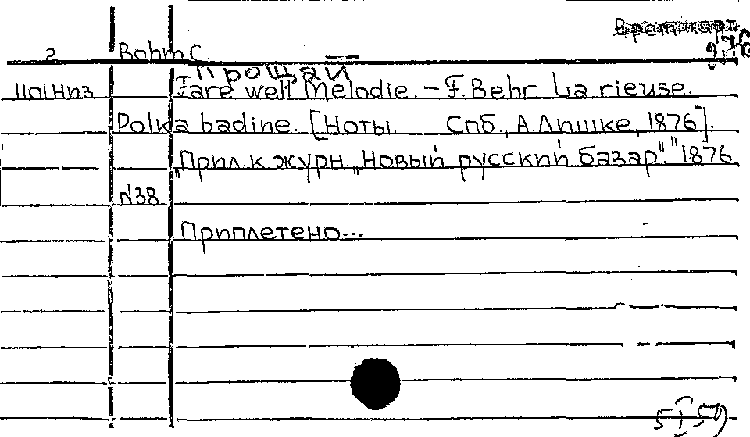 2 Bohm C.
Прощай
Fare well Melodie. – F. Behr La rieuse.
Polka badine. [Ноты Спб., А. Лишке, 1876].
"Прил. к журн. "Новый русский базар"." 1876
N38
Приплетено...
5 I 59